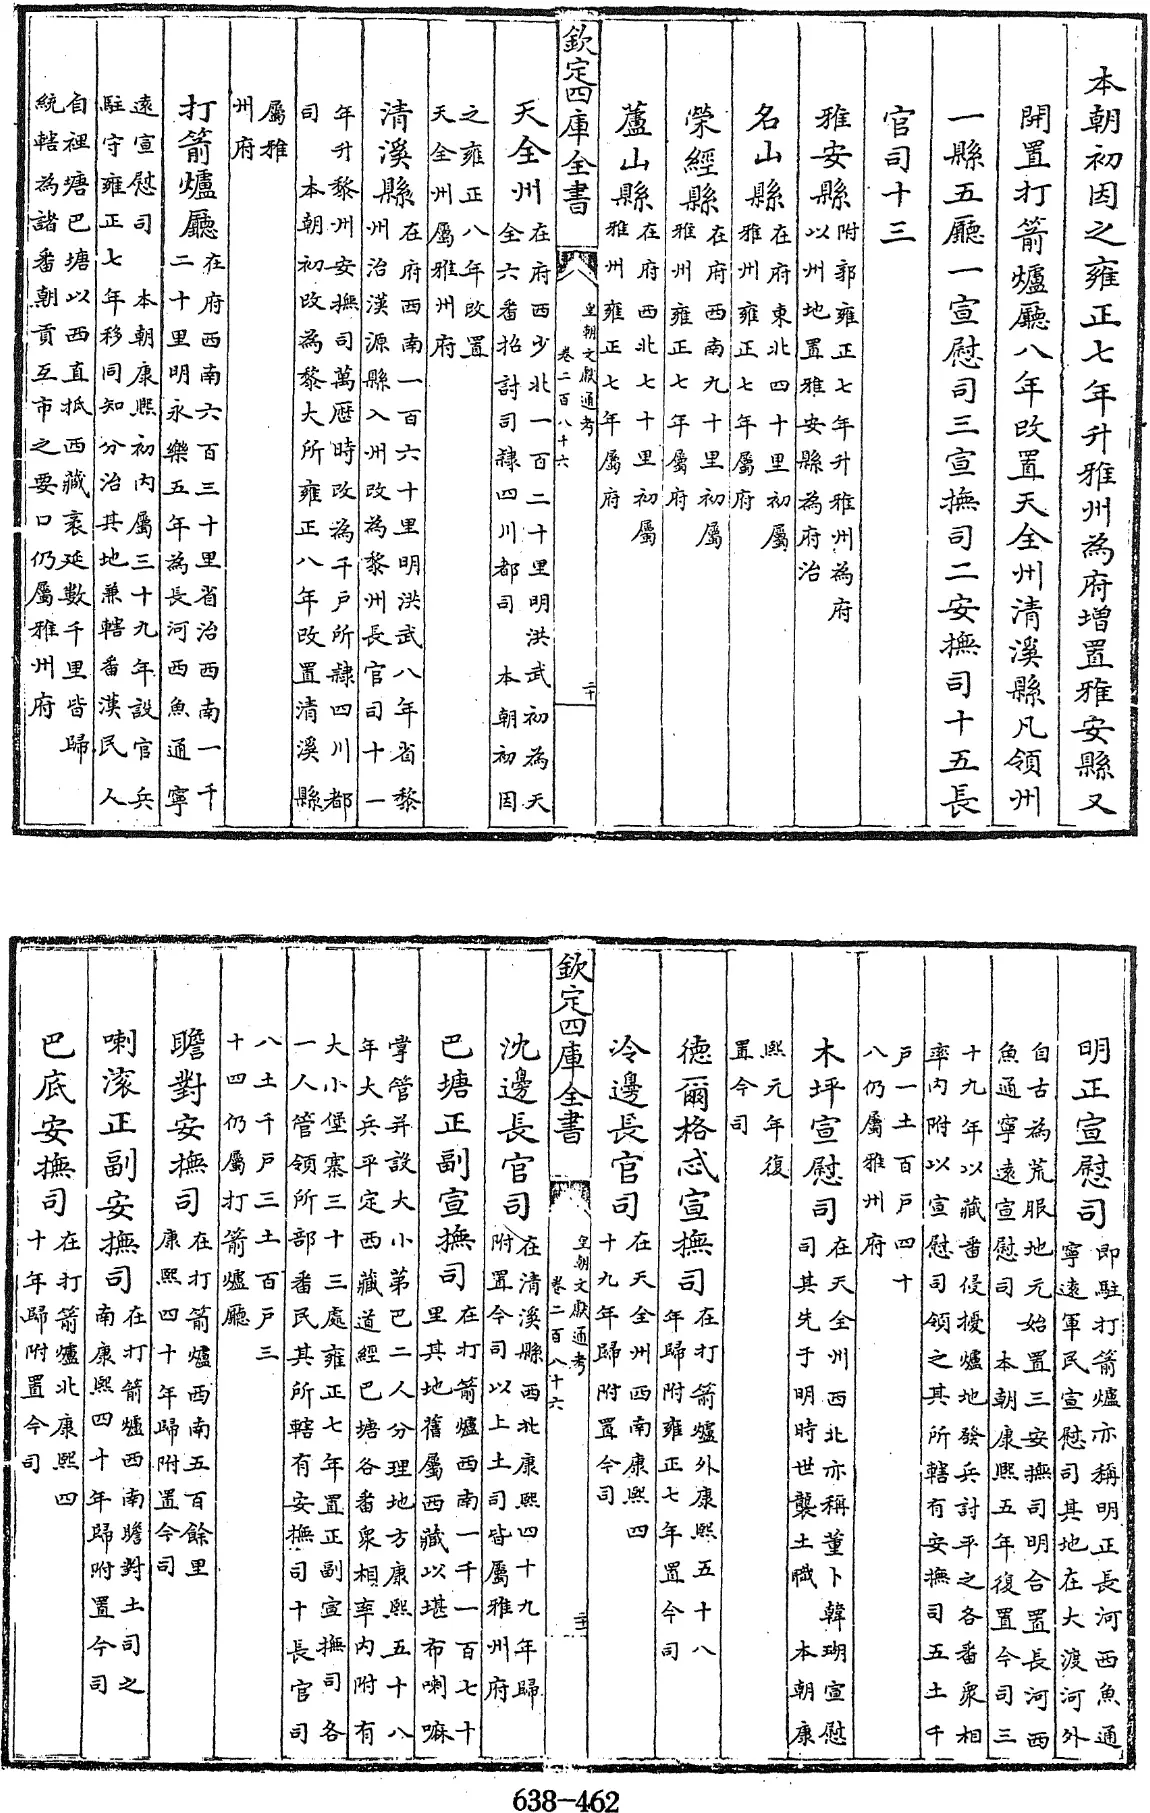 本朝初因之雍正七年升雅州為府增置雅安縣又
開置打箭爐廳八年改置天全州清溪縣凡領州
一縣五廳一宣慰司三宣撫司二安撫司十五長
官司十三
雅安縣附郭雍正七年升雅州為府
以州地置雅安縣為府治
名山縣在府東北四十里初屬
雅州雍正七年屬府
榮經縣在府西南九十里初屬
雅州雍正七年屬府
蘆山縣在府西北七十里初屬
雅州雍正七年屬府
欽定四庫全書
皇朝文獻通考
卷二百八十六
二十
天全州在府西少北一百二十里明洪武初為天
全六番招討司隸四川都司 本朝初因
之雍正八年改置
天全州屬雅州府
清溪縣在府西南一百六十里明洪武八年省黎
州治漢源縣入州改為黎州長官司十一
年升黎州安撫司萬厯時改為千戶所隸四川都
司 本朝初改為黎大所雍正八年改置清溪縣
屬雅
州府
打箭爐廳在府西南六百三十里省治西南一千
二十里明永樂五年為長河西魚通寧
遠宣慰司 本朝康熙初內屬三十九年設官兵
駐守雍正七年移同知分治其地兼轄番漢民人
自裡塘巴塘以西直抵西藏袤延數千里皆歸
統轄為諸番朝貢互市之要口仍屬雅州府
明正宣慰司即駐打箭爐亦稱明正長河西魚通
寧遠軍民宣慰司其地在大渡河外
自古為荒服地元始置三安撫司明合置長河西
魚通寧遠宣慰司 本朝康熙五年復置今司三
十九年以藏番侵擾爐地發兵討平之各番衆相
率內附以宣慰司領之其所轄有安撫司五土千
戶一土百戶四十
八仍屬雅州府
木坪宣慰司在天全州西北亦稱董卜韓瑚宣慰
司其先于明時世襲土職 本朝康
熙元年復
置今司
德爾格忒宣撫司在打箭爐外康熙五十八
年歸附雍正七年置今司
冷邊長官司在天全州西南康熙四
十九年歸附置今司
欽定四庫全書
皇朝文獻通考
卷二百八十六
二十一
沈邊長官司在清溪縣西北康熙四十九年歸
附置今司以上土司皆屬雅州府
巴塘正副宣撫司在打箭爐西南一千一百七十
里其地舊屬西藏以堪布喇嘛
掌管并設大小第巴二人分理地方康熙五十八
年大兵平定西藏道經巴塘各番衆相率內附有
大小堡寨三十三處雍正七年置正副宣撫司各
一人管領所部番民其所轄有安撫司十長官司
八土千戶三土百戶三
十四仍屬打箭爐廳
瞻對安撫司在打箭爐西南五百餘里
康熙四十年歸附置今司
喇滾正副安撫司在打箭爐西南瞻對土司之
南康熙四十年歸附置今司
巴底安撫司在打箭爐北康熙四
十年歸附置今司
638-462